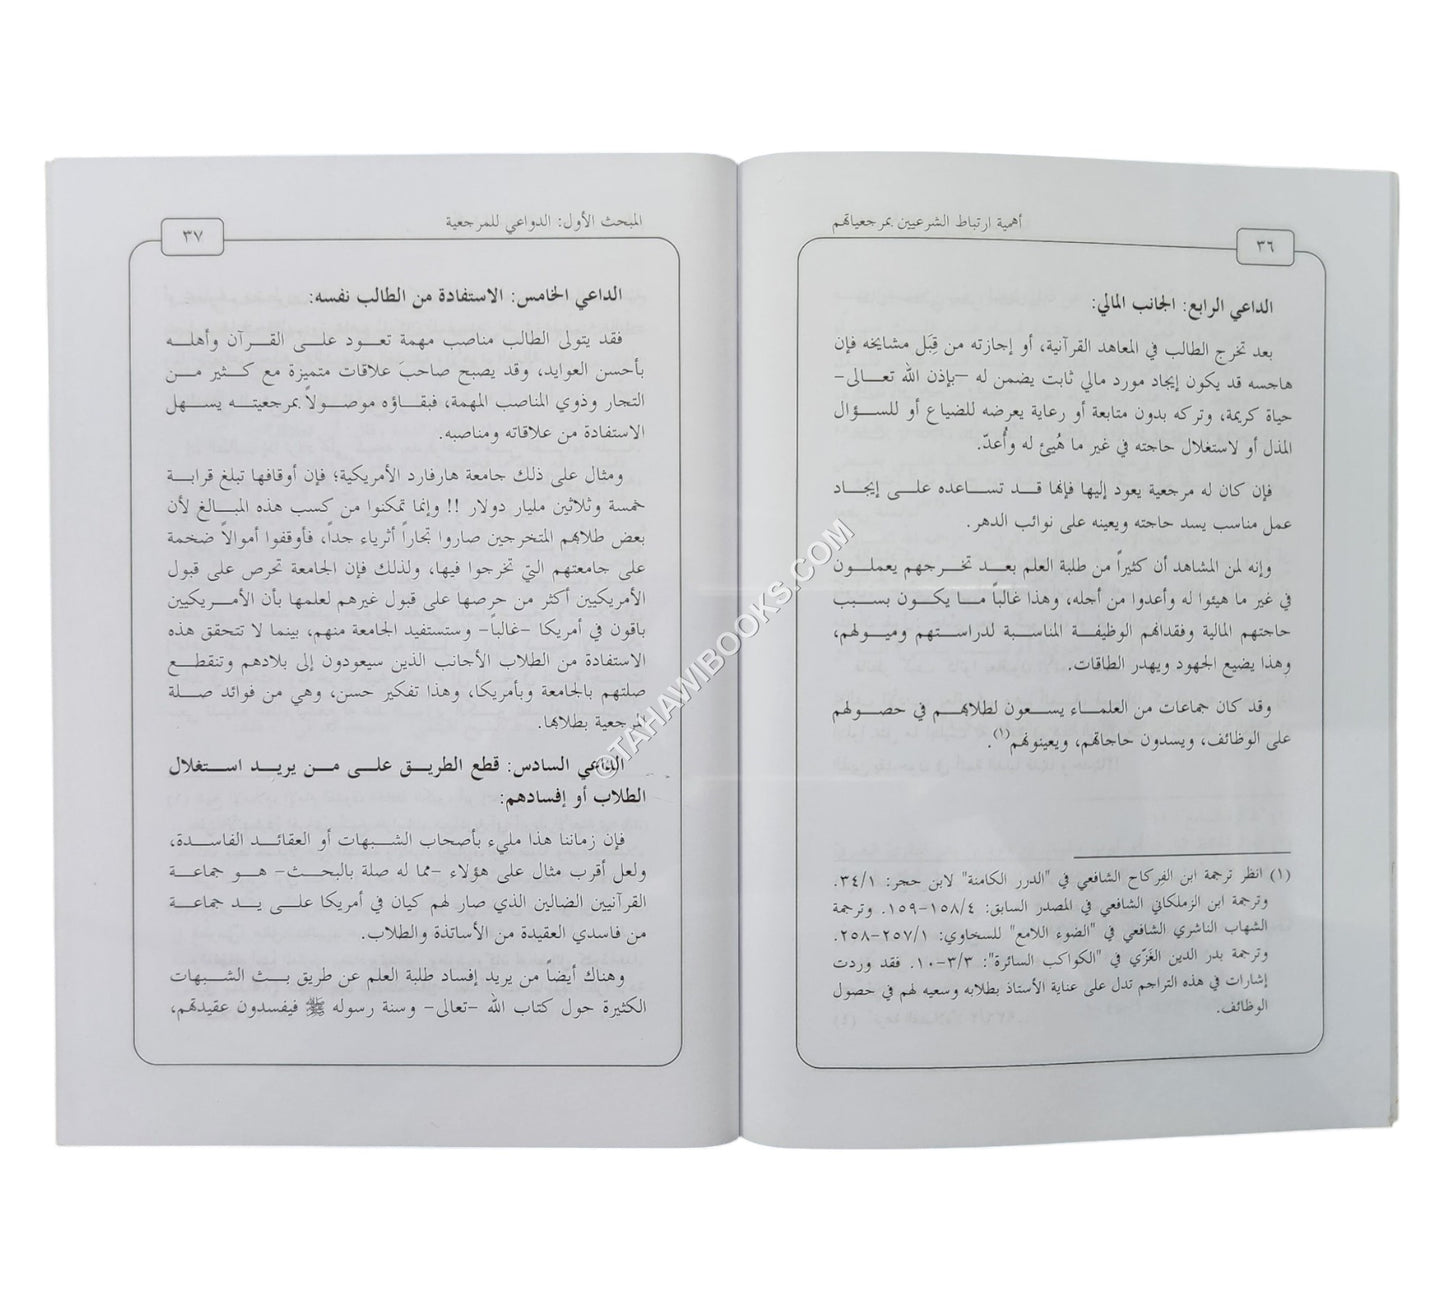 أهمية ارتباط الشرعيين بمرجعياتهم
٣٦
الداعي الرابع: الجانب المالي:
بعد تخرج الطالب في المعاهد القرآنية، أو إجازته من قِبَل مشايخه فإن
هاجسه قد يكون إيجاد مورد مالي ثابت يضمن له –بإذن الله تعالى–
حياة كريمة، وتركه بدون متابعة أو رعاية يعرضه للضياع أو للسؤال
المذل أو لاستغلال حاجته في غير ما هُيئ له وأُعدّ.
فإن كان له مرجعية يعود إليها فإنها قد تساعده على إيجاد
عمل مناسب يسد حاجته ويعينه على نوائب الدهر.
وإنه لمن المشاهد أن كثيراً من طلبة العلم بعد تخرجهم يعملون
في غير ما هيئوا له وأعدوا من أجله، وهذا غالباً ما يكون بسبب
حاجتهم المالية وفقدانهم الوظيفة المناسبة لدراستهم وميولهم،
وهذا يضيع الجهود ويهدر الطاقات.
وقد كان جماعات من العلماء يسعون لطلابهم في حصولهم
على الوظائف، ويسدون حاجاتهم، ويعينونهم(١).
(١) انظر ترجمة ابن الفِركاح الشافعي في "الدرر الكامنة" لابن حجر: ٣٤/١.
وترجمة ابن الزملكاني الشافعي في المصدر السابق: ١٥٨/٤-١٥٩. وترجمة
الشهاب الناشري الشافعي في "الضوء اللامع" للسخاوي: ٢٥٧/١-٢٥٨.
وترجمة بدر الدين الغَزّي في "الكواكب السائرة": ٣/٣-١٠. فقد وردت
إشارات في هذه التراجم تدل على عناية الأستاذ بطلابه وسعيه لهم في حصول
الوظائف.
المبحث الأول: الدواعي للمرجعية
٣٧
الداعي الخامس: الاستفادة من الطالب نفسه:
فقد يتولى الطالب مناصب مهمة تعود على القرآن وأهله
بأحسن العوايد، وقد يصبح صاحبَ علاقات متميزة مع كثير من
التجار وذوي المناصب المهمة، فبقاؤه موصولاً بمرجعيته يسهل
الاستفادة من علاقاته ومناصبه.
ومثال على ذلك جامعة هارفارد الأمريكية؛ فإن أوقافها تبلغ قرابة
خمسة وثلاثين مليار دولار !! وإنما تمكنوا من كسب هذه المبالغ لأن
بعض طلابهم المتخرجين صاروا تجاراً أثرياء جداً، فأوقفوا أموالاً ضخمة
على جامعتهم التي تخرجوا فيها، ولذلك فإن الجامعة تحرص على قبول
الأمريكيين أكثر من حرصها على قبول غيرهم لعلمها بأن الأمريكيين
باقون في أمريكا –غالباً– وستستفيد الجامعة منهم، بينما لا تتحقق هذه
الاستفادة من الطلاب الأجانب الذين سيعودون إلى بلادهم وتنقطع
صلتهم بالجامعة وبأمريكا، وهذا تفكير حسن، وهي من فوائد صلة
المرجعية بطلابها.
الداعي السادس: قطع الطريق على من يريد استغلال
الطلاب أو إفسادهم:
فإن زماننا هذا مليء بأصحاب الشبهات أو العقائد الفاسدة،
ولعل أقرب مثال على هؤلاء –مما له صلة بالبحث– هو جماعة
القرآنيين الضالين الذي صار لهم كيان في أمريكا على يد جماعة
من فاسدي العقيدة من الأساتذة والطلاب.
وهناك أيضاً من يريد إفساد طلبة العلم عن طريق بث الشبهات
الكثيرة حول كتاب الله –تعالى– وسنة رسوله ﷺ فيفسدون عقيدتهم،
©TAHAWIBOOKS.COM